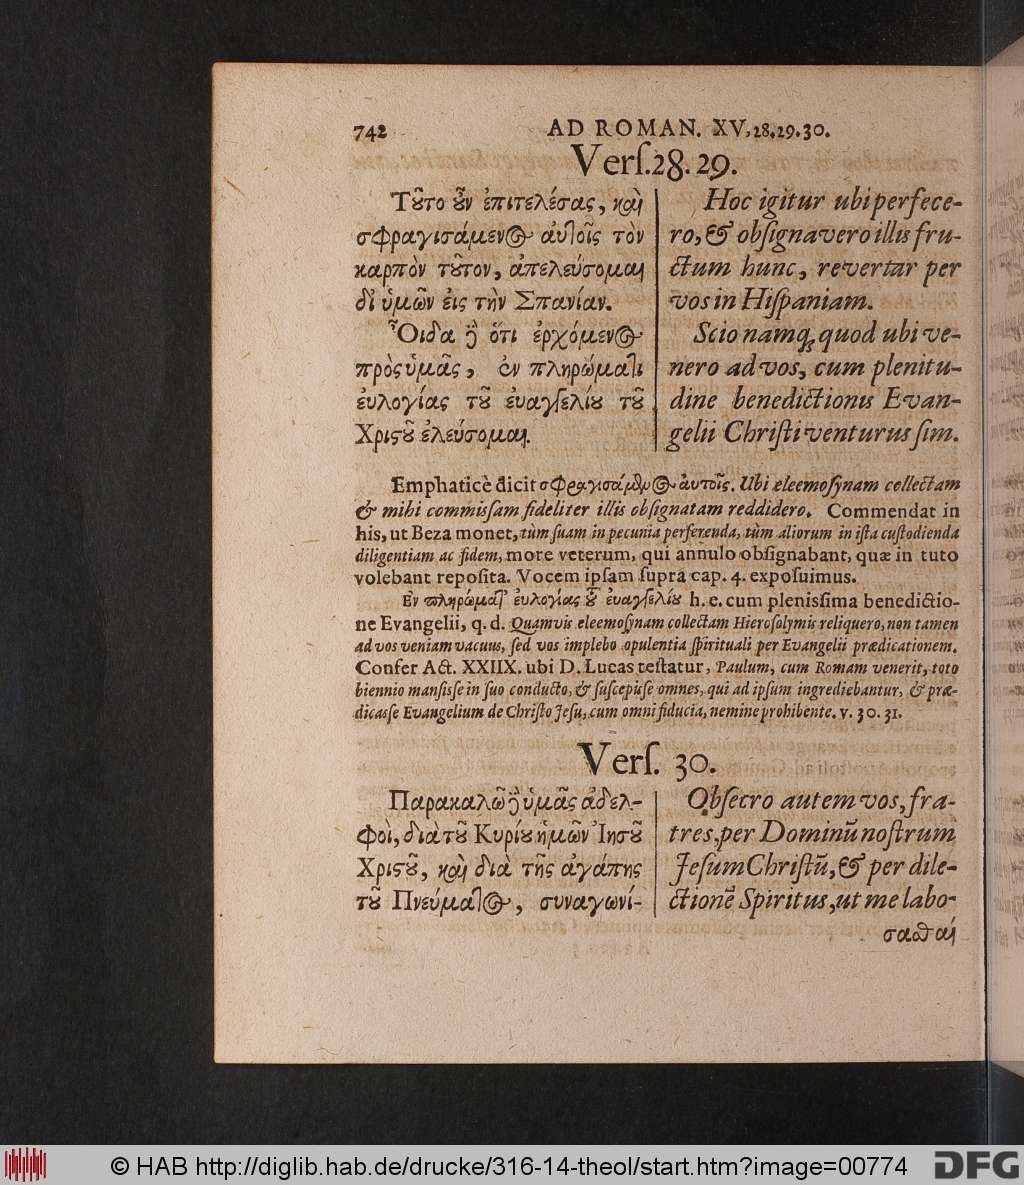 742 AD ROMAN. XV, 28. 29. 30.
Verſ. 28. 29.
Τȣ͂το ȣ̓͂ν ἐπιτελέσας, καὶ
σφραγισάμενος αὐτοῖς τὸν
καρπὸν τȣ͂τον, ἀπελεύσομαι
δἰ ὑμῶν εἰς τὴν Σπανίαν.
Ὂιδα γὰρ ὅτι ἐρχόμενος
πρὸς ὑμᾶς, ἐν πληρώματι
ἐυλογίας τȣ͂ ἐυαγγελίȣ τȣ͂
Χριϛȣ͂ ἐλεύσομαι.
Hoc igitur ubi perfece-
ro, & obſignavero illis fru-
ctum hunc, revertar per
vos in Hiſpaniam.
Scio namq; quod ubi ve-
nero ad vos, cum plenitu-
dine benedictionis Evan-
gelii Chriſti venturus ſim.
Emphaticè dicit σφραγισάμενος αὐτοῖς. Ubi eleemoſynam collectam
& mihi commiſſam fideliter illis obſignatam reddidero. Commendat in
his, ut Beza monet, tùm ſuam in pecunia perferenda, tùm aliorum in iſta cuſtodienda
diligentiam ac fidem, more veterum, qui annulo obſignabant, quæ in tuto
volebant repoſita. Vocem ipſam ſupra cap. 4. expoſuimus.
Εν πληρώματι ἐυλογίας τȣ͂ ἐυαγγελίȣ h. e. cum pleniſſima benedictio-
ne Evangelii, q. d. Quamvis eleemoſynam collectam Hieroſolymis reliquero, non tamen
ad vos veniam vacuus, ſed vos implebo opulentia ſpirituali per Evangelii prædicationem.
Confer Act. XXIIX. ubi D. Lucas teſtatur, Paulum, cum Romam venerit, toto
biennio manſiſſe in ſuo conducto, & ſuſcepiſſe omnes, qui ad ipſum ingrediebantur, & præ-
dicaſſe Evangelium de Chriſto Jeſu, cum omni fiducia, nemine prohibente. v. 30. 31.
Verſ. 30.
Παρακαλῶ γὰρ ὑμᾶς ἀδελ-
φοὶ, διὰ τȣ͂ Κυρίȣ ἡμῶν Ἰησȣ͂
Χριϛȣ͂, καὶ διὰ τῆς ἀγάπης
τȣ͂ Πνεύματος, συναγωνί-
Obſecro autem vos, fra-
tres, per Dominū noſtrum
Jeſum Chriſtū, & per dile-
ctionē Spiritus, ut me labo-
σαϑαί
© HAB http://diglib.hab.de/drucke/316-14-theol/start.htm?image=00774 DFG